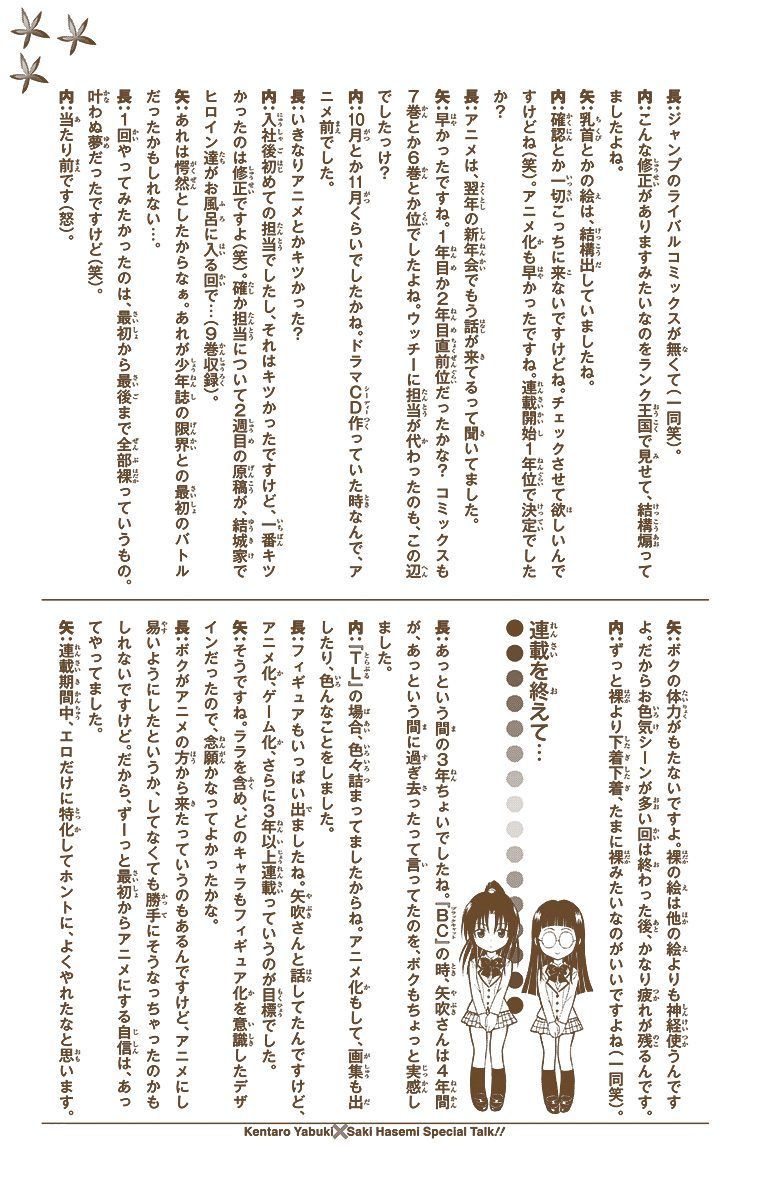 長：ジャンプのライバルコミックスが無くて（一同笑）。
内：こんな修正がありますみたいなのをランク王国で見せて、結構煽って
ましたよね。
矢：乳首とかの絵は、結構出していましたね。
内：確認とか一切こっちに来ないですけどね。チェックさせて欲しいんで
すけどね（笑）。アニメ化も早かったですね。連載開始１年位で決定でした
か？
長：アニメは、翌年の新年会でもう話が来てるって聞いてました。
矢：早かったですね。１年目か２年目直前位だったかな？ コミックスも
７巻とか６巻とか位でしたよね。ウッチーに担当が代わったのも、この辺
でしたっけ？
内：10月とか11月くらいでしたかね。ドラマＣＤ作っていた時なんで、ア
ニメ前でした。
長：いきなりアニメとかキツかった？
内：入社後初めての担当でしたし、それはキツかったですけど、一番キツ
かったのは修正ですよ（笑）。確か担当について２週目の原稿が、結城家で
ヒロイン達がお風呂に入る回で…（９巻収録）。
矢：あれは愕然としたからなぁ。あれが少年誌の限界との最初のバトル
だったかもしれない…。
長：１回やってみたかったのは、最初から最後まで全部裸っていうもの。
叶わぬ夢だったですけど（笑）。
内：当たり前です（怒）。
矢：ボクの体力がもたないですよ。裸の絵は他の絵よりも神経使うんです
よ。だからお色気シーンが多い回は終わった後、かなり疲れが残るんです。
内：ずっと裸より下着下着、たまに裸みたいなのがいいですよね（一同笑）。
連載を終えて…
長：あっという間の３年ちょいでしたね。『ＢＣ』の時、矢吹さんは４年間
が、あっという間に過ぎ去ったって言ってたのを、ボクもちょっと実感し
ました。
内：『ＴＬ』の場合、色々詰まってましたからね。アニメ化もして、画集も出
したり、色んなことをしました。
長：フィギュアもいっぱい出ましたね。矢吹さんと話してたんですけど、
アニメ化、ゲーム化、さらに３年以上連載っていうのが目標でした。
矢：そうですね。ララを含め、どのキャラもフィギュア化を意識したデザ
インだったので、念願かなってよかったかな。
長：ボクがアニメの方から来たっていうのもあるんですけど、アニメにし
易いようにしたというか、してなくても勝手にそうなっちゃったのかも
しれないですけど。だから、ずーっと最初からアニメにする自信は、あっ
てやってました。
矢：連載期間中、エロだけに特化してホントに、よくやれたなと思います。
Kentaro Yabuki×Saki Hasemi Special Talk!!